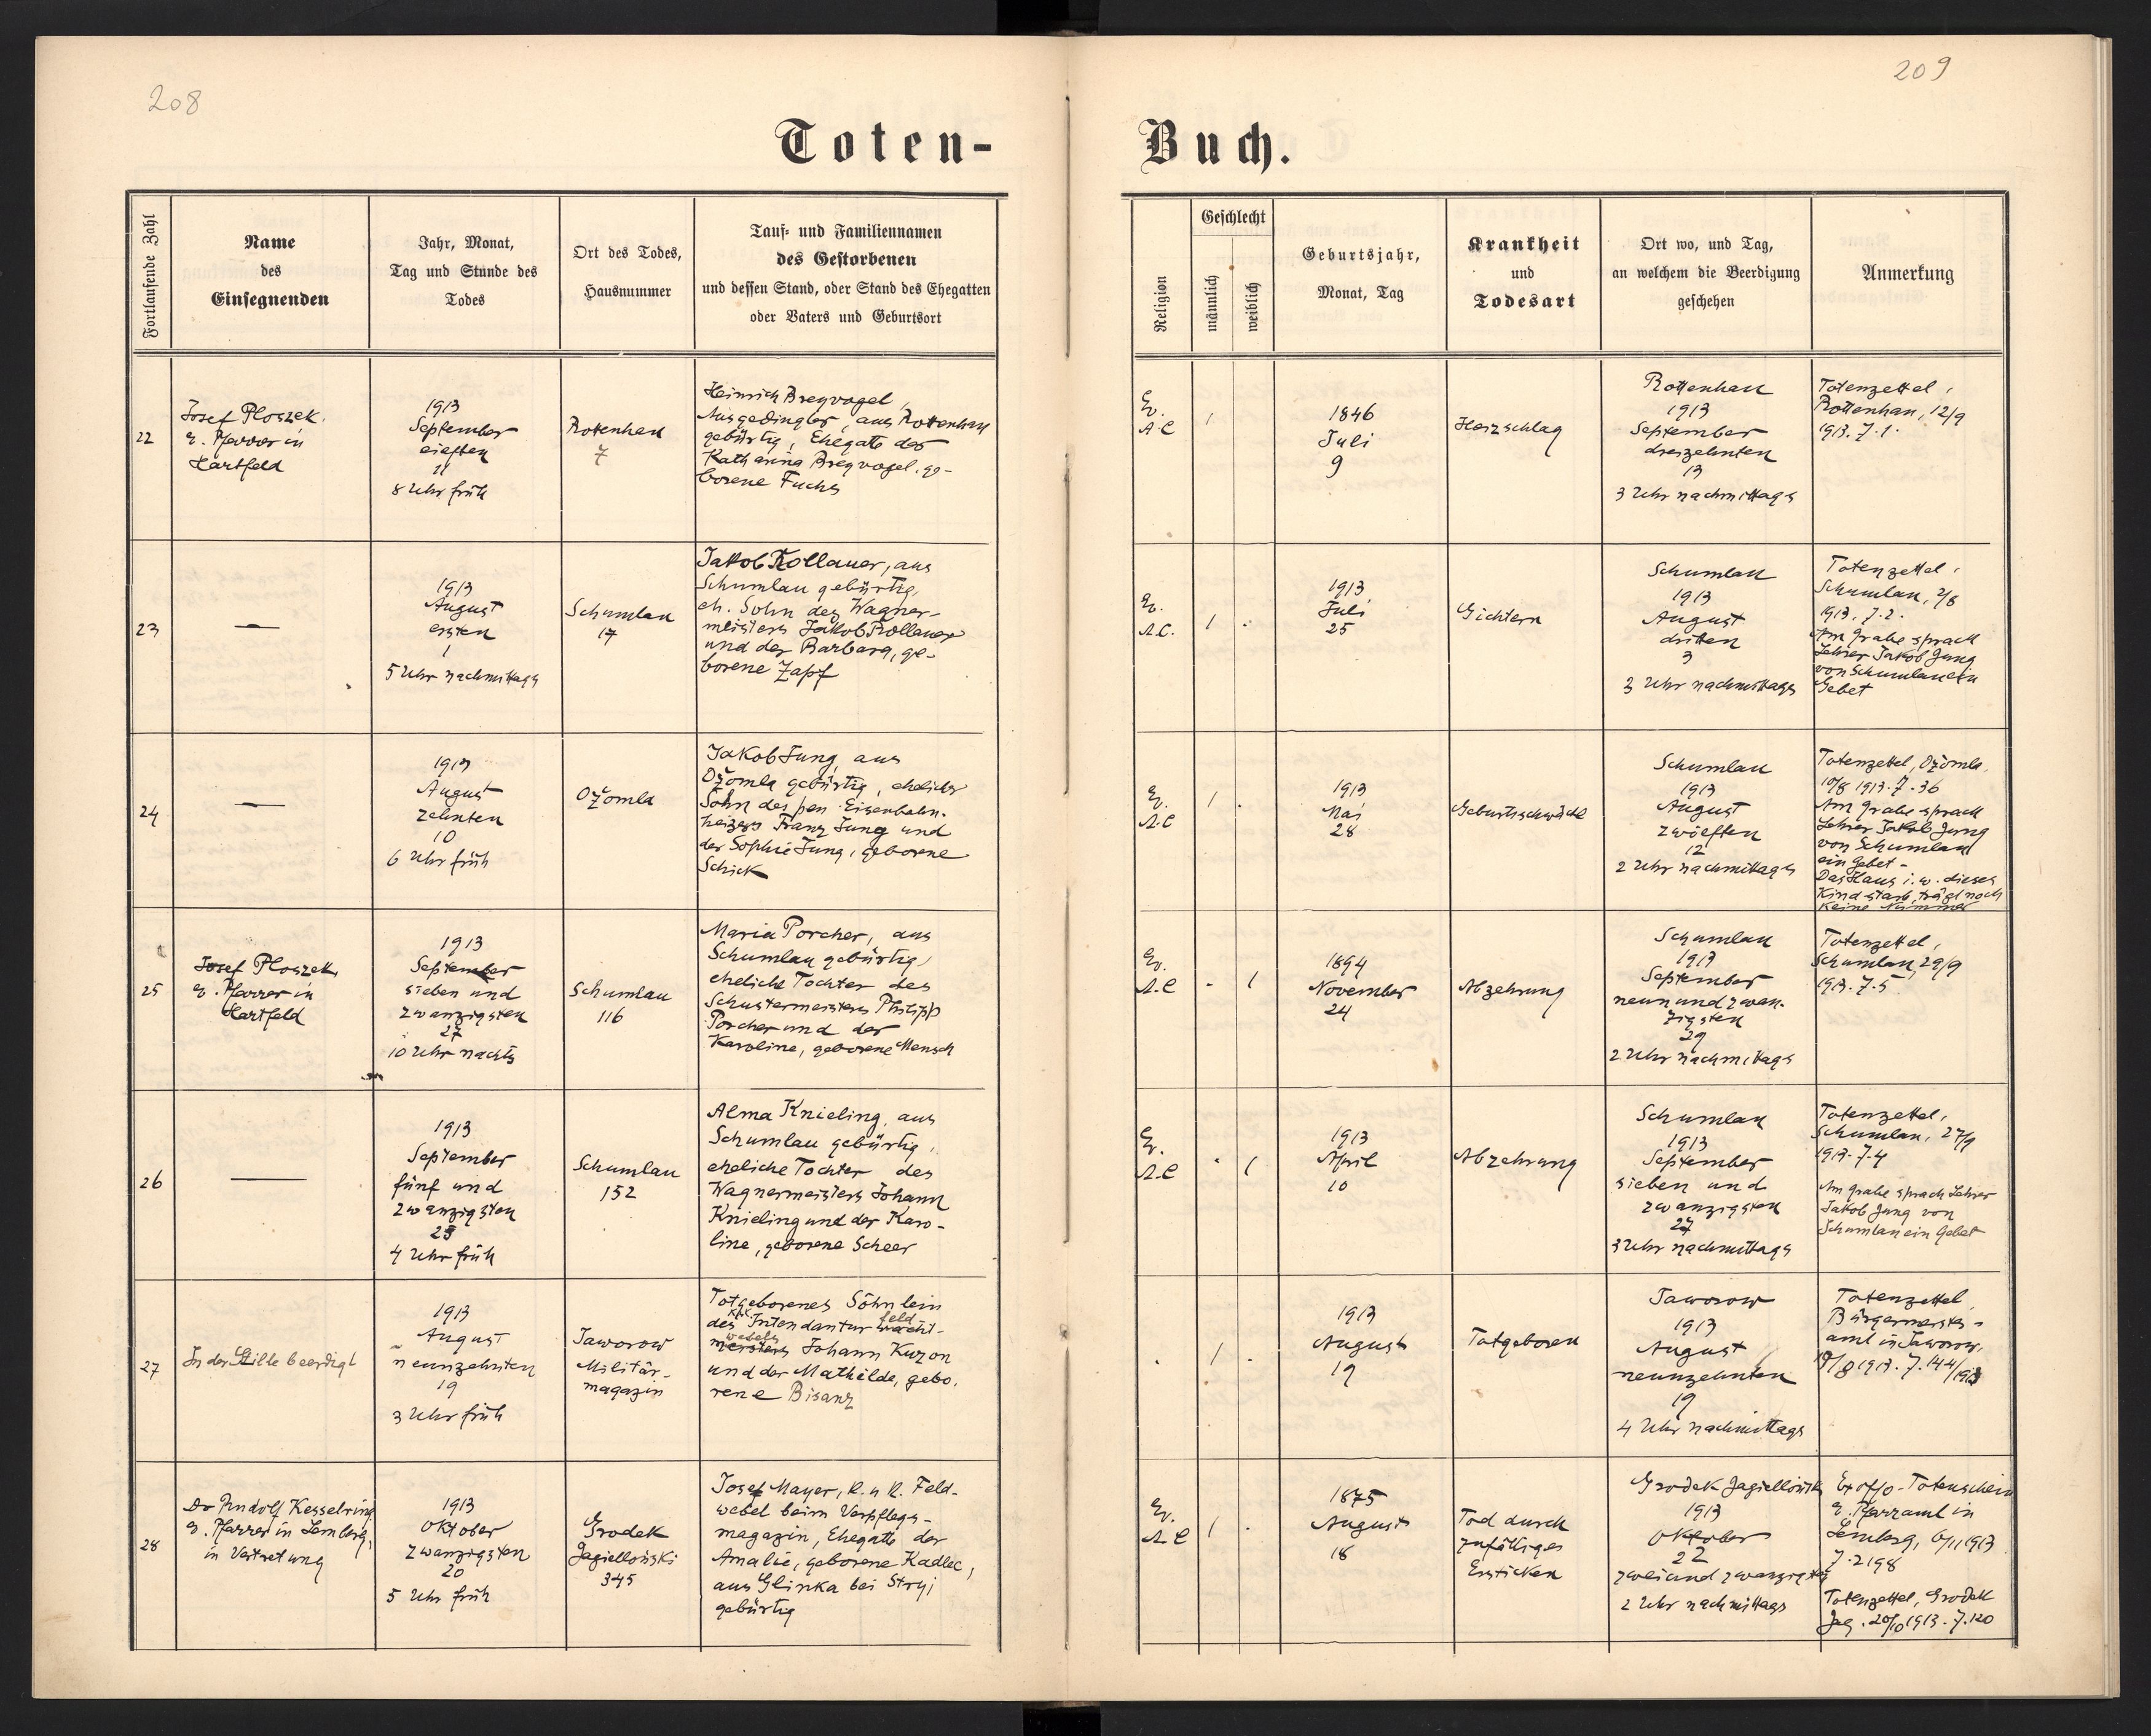 208
209
Toten-
Buch.
Fortlaufende Zahl
Name
des
Einsegnenden
Jahr, Monat,
Tag und Stunde des
Todes
Ort des Todes,
Hausnummer
Tauf- und Familiennamen
des Gestorbenen
und dessen Stand, oder Stand des Ehegatten
oder Vaters und Geburtsort
Religion
Geschlecht
männlich
weiblich
Geburtsjahr,
Monat, Tag
Krankheit
und
Todesart
Ort wo, und Tag,
an welchem die Beerdigung
geschehen
Anmerkung
22
Josef Ploszek.
ev. Pfarrer in
Hartfeld
1913
September
elften
11
8 Uhr früh
Rottenhan
7
Heinrich Bregvogel,
Ausgedingler, aus Rottenhan
gebürtig, Ehegatte der
Katharina Bregvogel. ge-
borene Fuchs
Ev.
A.C
1
1846
Juli
9
Herzschlag
Rottenhan
1913
September
dreizehnten
13
3 Uhr nachmittags
Totenzettel,
Rottenhan, 12/9
1913. Z. 1.
23
—
1913
August
ersten
1
5 Uhr nachmittags
Schumlau
17
Jakob Kollauer, aus
Schumlau gebürtig,
eh. Sohn des Wagner-
meisters Jakob Kollauer
und der Barbara, ge-
borene Zapf
Ev.
A.C.
1 .
1913
Juli
25
Gichtern
Schumlau
1913
August
dritten
3
3 Uhr nachmittags
Totenzettel,
Schumlau, 2/8
1913. Z. 2.
Am Grabe sprach
Lehrer Jakob Jung
von Schumlau ein
Gebet
24
—
1913
August
zehnten
10
6 Uhr früh
Ożomla
Jakob Jung, aus
Ożomla gebürtig, ehelicher
Sohn des pen. Eisenbahn-
heizers Franz Jung und
der Sophie Jung, geborene
Schick
Ev.
A.C
1 .
1913
Mai
28
Geburtsschwäche
Schumlau
1913
August
zwölften
12
2 Uhr nachmittags
Totenzettel, Ożomla,
10/8 1913. Z. 36
Am Grabe sprach
Lehrer Jakob Jung
von Schumlau
ein Gebet -
Das Haus i. w. dieses
Kind starb, trägt noch
keine Nummer
25
Josef Ploszek,
ev. Pfarrer in
Hartfeld
1913
September
sieben und
zwanzigsten
27
10 Uhr nachts
Schumlau
116
Maria Porcher, aus
Schumlau gebürtig,
eheliche Tochter des
Schustermeisters Philipp
Porcher und der
Karoline, geborene Mensch
Ev.
A.C
- 1
1894
November
24
Abzehrung
Schumlau
1913
September
neun und zwan-
zigsten
29
2 Uhr nachmittags
Totenzettel,
Schumlau, 29/9
1913. Z. 5
26
—
1913
September
fünf und
zwanzigsten
25
4 Uhr früh
Schumlau
152
Alma Knieling, aus
Schumlau gebürtig,
eheliche Tochter des
Wagnermeisters Johann
Knieling und der Karo-
line, geborene Scheer
Ev.
A.C
. 1
1913
April
10
Abzehrung
Schumlau
1913
September
sieben und
zwanzigsten
27
3 Uhr nachmittags
Totenzettel,
Schumlau, 27/9
1913. Z. 4
Am Grabe sprach Lehrer
Jakob Jung von
Schumlau ein Gebet
27
In der Stille beerdigt
1913
August
neunzehnten
19
3 Uhr früh
Jaworow
Militär-
magazin
Totgeborenes Söhnlein
des k.u.k. Intendantur feld wacht-
webels meisters Johann Kuzon
und der Mathilde, gebo-
rene Bisanz
. 1 .
1913
August
19
Totgeboren
Jaworow
1913
August
neunzehnten
19
4 Uhr nachmittags
Totenzettel,
Bürgermeister-
amt in Jaworow,
19/8 1913. Z. 144/1913
28
Dr Rudolf Kesselring
ev. Pfarrer in Lemberg,
in Vertretung
1913
Oktober
zwanzigsten
20
5 Uhr früh
Grodek
Jagielloński
345
Josef Mayer, k. u. k. Feld-
webel beim Verpflegs-
magazin, Ehegatte der
Amalie, geborene Kadlec,
aus Glinka bei Stryj
gebürtig
Ev.
A C
1 .
1875
August
18
Tod durch
zufälliges
Ersticken
Grodek Jagielloński
1913
Oktober
22
zweiund zwanzigsten
2 Uhr nachmittags
Ex offo-Totenschein
ev. Pfarramt in
Lemberg, 6/11 1913
Z. 2198
Totenzettel, Grodek
Jag. 20/10 1913. Z. 120